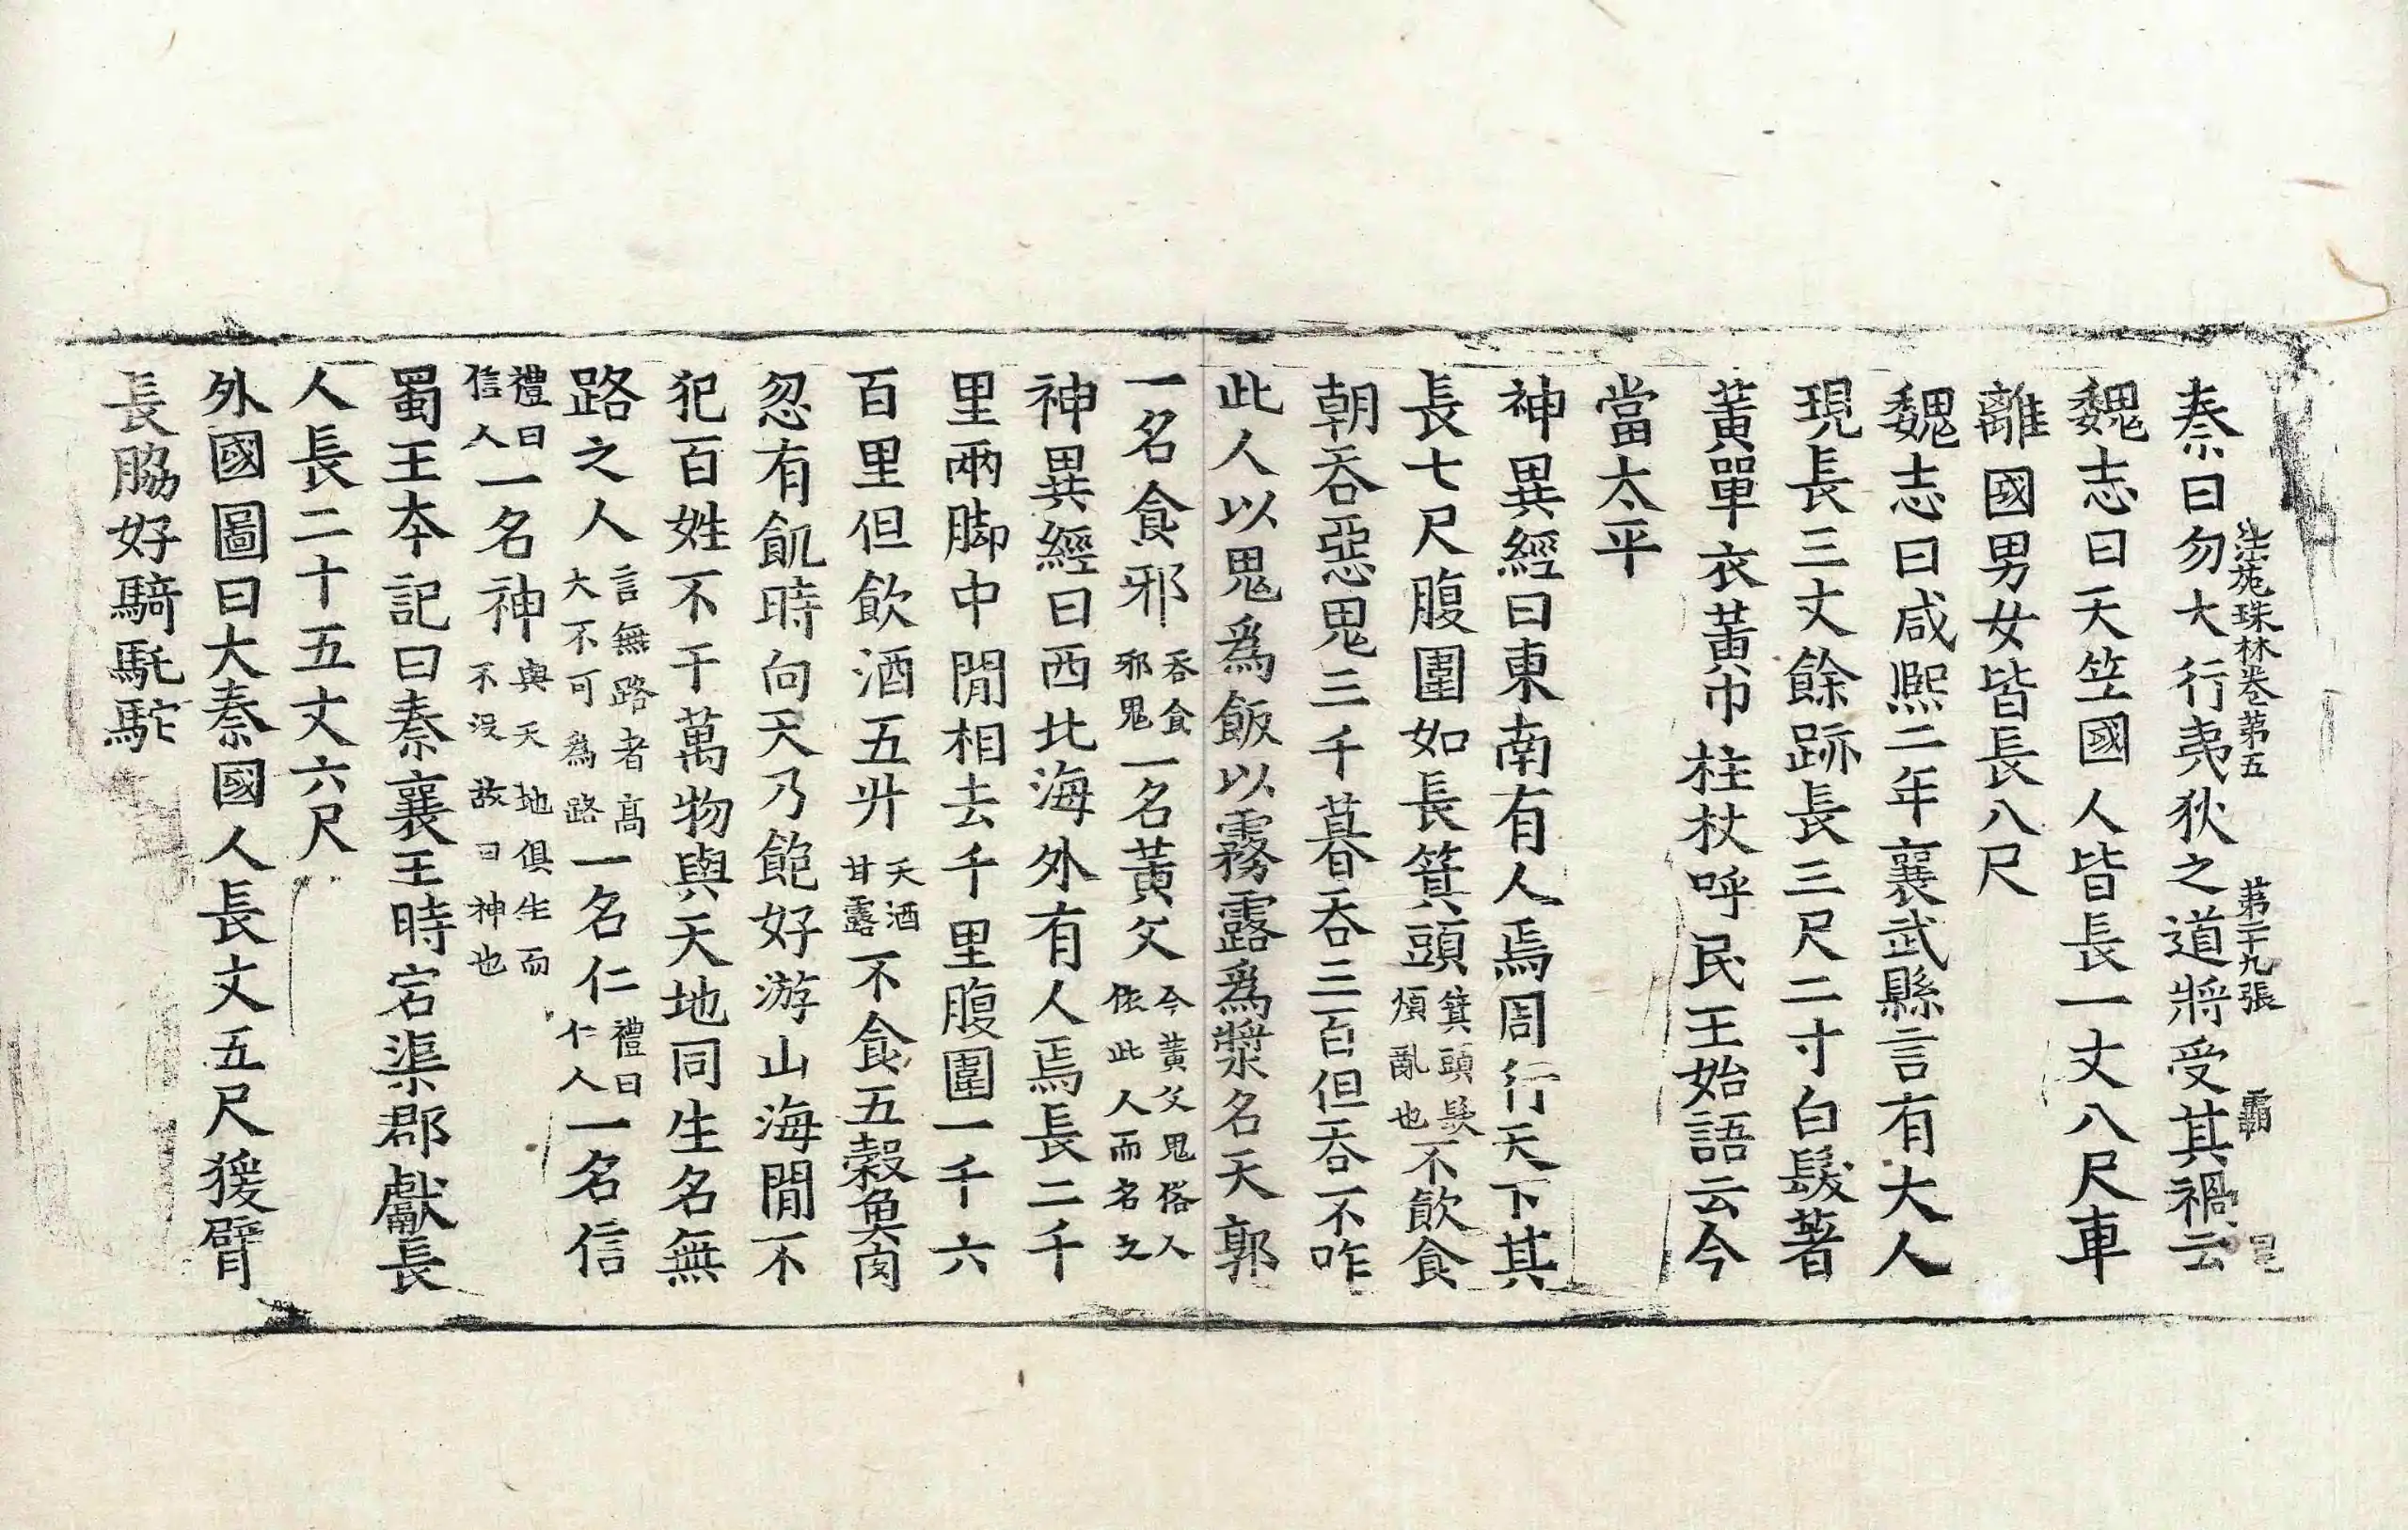 法苑珠林卷第五 第二十九張 霸
秦曰勿大行夷狄之道將受其禍云
魏志曰天竺國人皆長一丈八尺車
離國男女皆長八尺
魏志曰咸熙二年襄武縣言有大人
現長三丈餘跡長三尺二寸白髮著
黃單衣黃巾柱杖呼民王始語云今
當太平
神異經曰東南有人焉周行天下其
長七尺腹圍如長箕頭箕頭髮煩亂也不飲食
朝吞惡鬼三千暮吞三百但吞不咋
此人以鬼爲飯以霧露爲漿名天郭
一名食邪吞食邪鬼一名黃父今黃父鬼俗人依此人而名之
神異經曰西北海外有人焉長二千
里兩脚中閒相去千里腹圍一千六
百里但飲酒五升天酒甘露不食五穀魚肉
忽有飢時向天乃飽好游山海閒不
犯百姓不干萬物與天地同生名無
路之人言無路者高大不可為路一名仁禮曰仁人一名信
禮曰信人一名神與天地俱生而不沒故曰神也
蜀王本記曰秦襄王時宕渠郡獻長
人長二十五丈六尺
外國圖曰大秦國人長丈五尺猨臂
長脇好騎駞駝